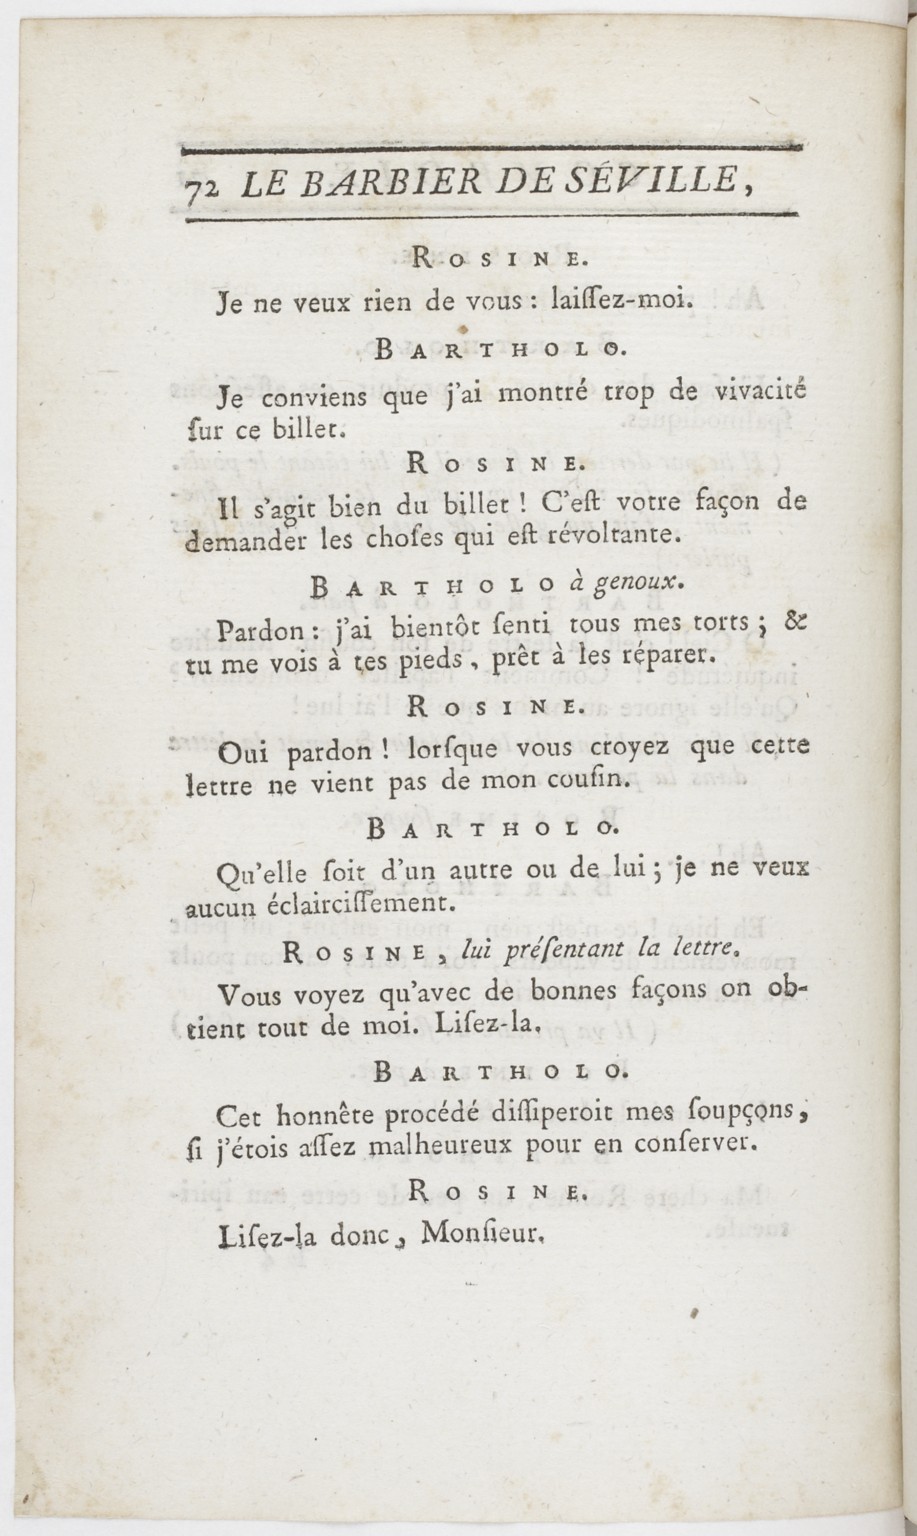 72 LE BARBIER DE SÉVILLE,
ROSINE.
Je ne veux rien de vous : laiſſez-moi.
BARTHOLO.
Je conviens que j'ai montré trop de vivacité
ſur ce billet.
ROSINE.
Il s'agit bien du billet ! C'eſt votre façon de
demander les choſes qui eſt révoltante.
BARTHOLO à genoux.
Pardon : j'ai bientôt ſenti tous mes torts ; &
tu me vois à tes pieds, prêt à les réparer.
ROSINE.
Oui pardon ! lorſque vous croyez que cette
lettre ne vient pas de mon couſin.
BARTHOLO.
Qu'elle ſoit d'un autre ou de lui ; je ne veux
aucun éclairciſſement.
ROSINE, lui préſentant la lettre.
Vous voyez qu'avec de bonnes façons on ob-
tient tout de moi. Liſez-la.
BARTHOLO.
Cet honnête procédé diſſiperoit mes ſoupçons,
ſi j'étois aſſez malheureux pour en conſerver.
ROSINE.
Liſez-la donc, Monſieur.